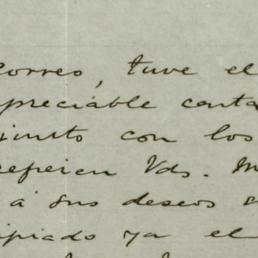 Correo, tuve el
preciable carta
junto con los
refieren Vds. M
a sus deseos
ipiado ya el